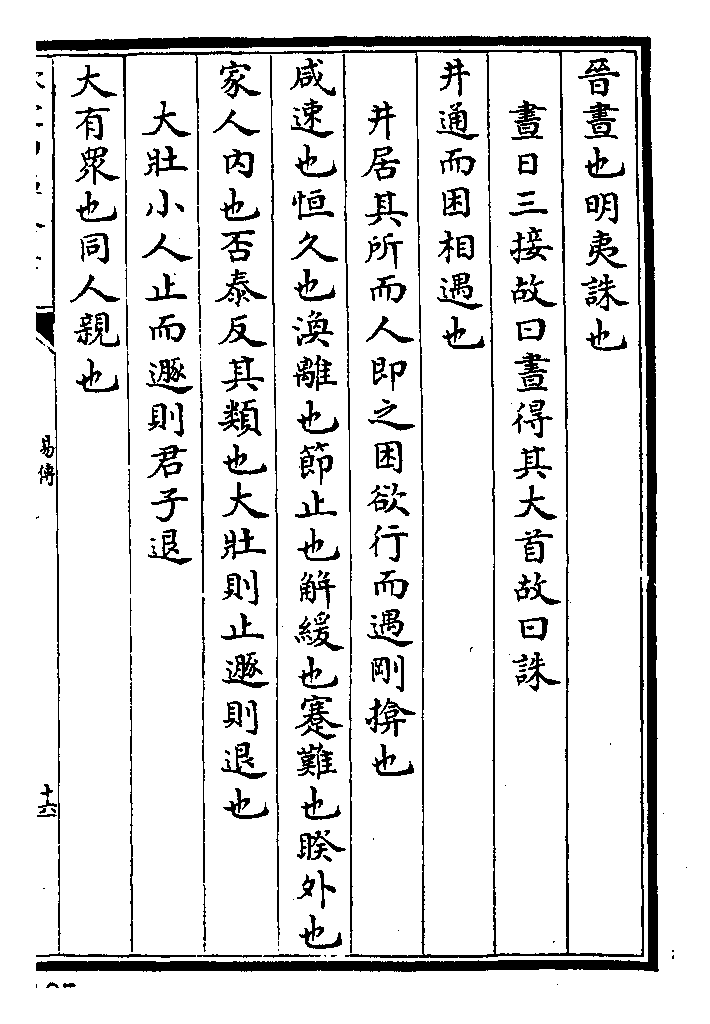 晉晝也明夷誅也
晝日三接故曰晝得其大首故曰誅
井通而困相遇也
井居其所而人即之困欲行而遇剛揜也
咸速也恒久也渙離也節止也解緩也蹇難也睽外也
家人内也否泰反其類也大壯則止遯則退也
大壯小人止而遯則君子退
大有眾也同人親也
易傳
十六